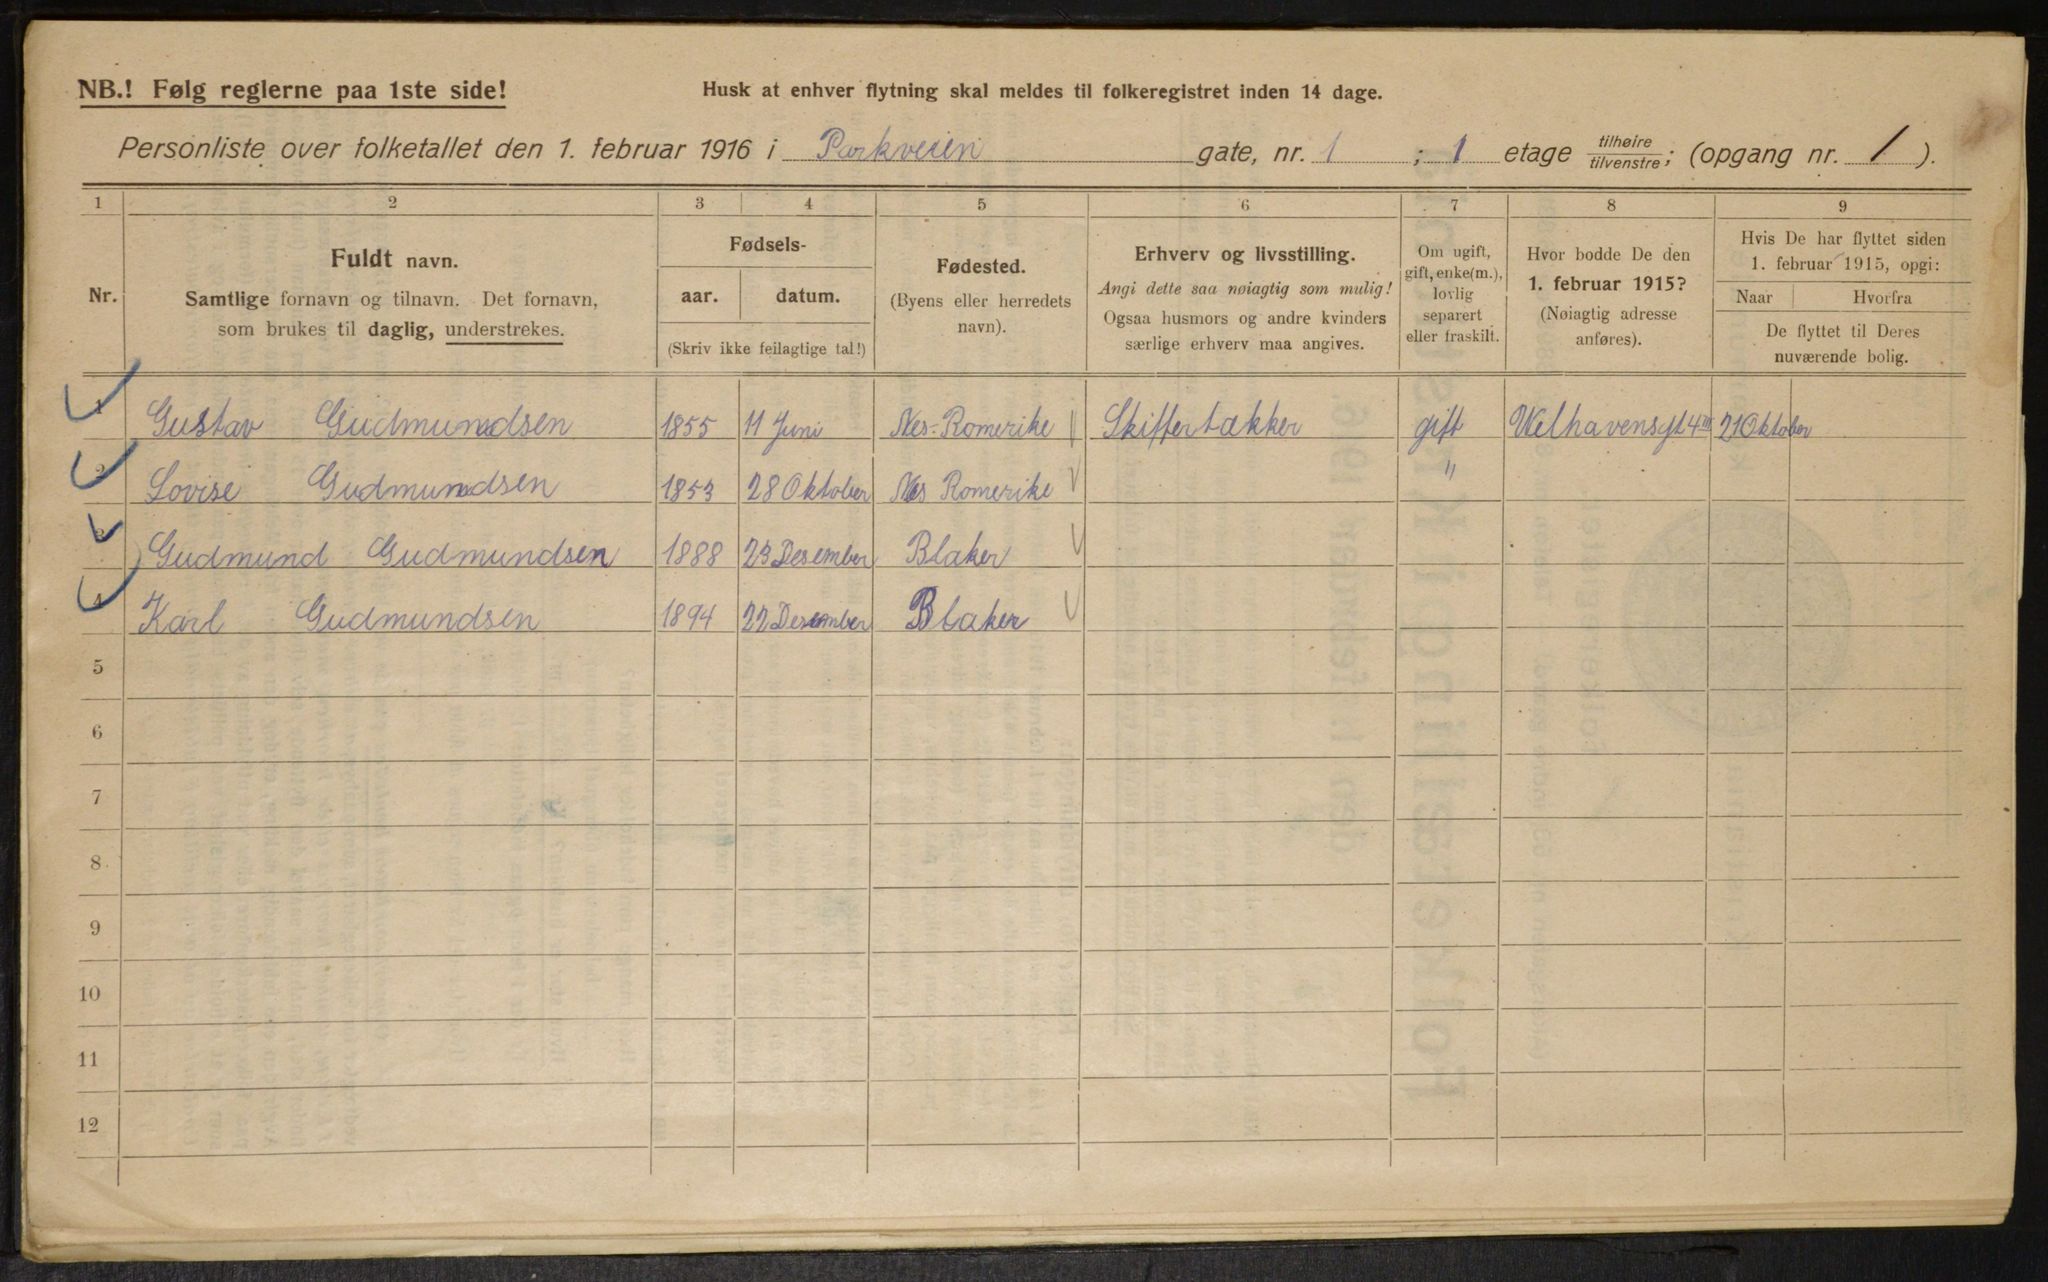 NB.! Følg reglerne paa 1ste side!
Husk at enhver flytning skal meldes til folkeregistret inden 14 dage.
Personliste over folketallet den 1. februar 1916 i Parkveien gate, nr. 1 ; 1 etage tilhøire/tilvenstre; (opgang nr. 1 ).
1 2 3 4 5 6 7 8 9
Nr.
Fuldt navn.
Samtlige fornavn og tilnavn. Det fornavn,
som brukes til daglig, understrekes.
Fødsels-
aar. datum.
(Skriv ikke feilagtige tal!)
Fødested.
(Byens eller herredets
navn).
Erhverv og livsstilling.
Angi dette saa nøiagtig som mulig!
Ogsaa husmors og andre kvinders
særlige erhverv maa angives.
Om ugift,
gift, enke(m.),
lovlig
separert
eller fraskilt.
Hvor bodde De den
1. februar 1915?
(Nøiagtig adresse
anføres).
Hvis De har flyttet siden
1. februar 1915, opgi:
Naar Hvorfra
De flyttet til Deres
nuværende bolig.
1 Gustav Gudmundsen 1855 11 Juni Nes-Romerike Skiffertækker gift Welhavensgt 4 III 21 Oktober
2 Lovise Gudmundsen 1853 28 Oktober Nes Romerike "
3 Gudmund Gudmundsen 1888 23 Desember Blaker
4 Karl Gudmundsen 1894 22 Desember Blaker
5
6
7
8
9
10
11
12